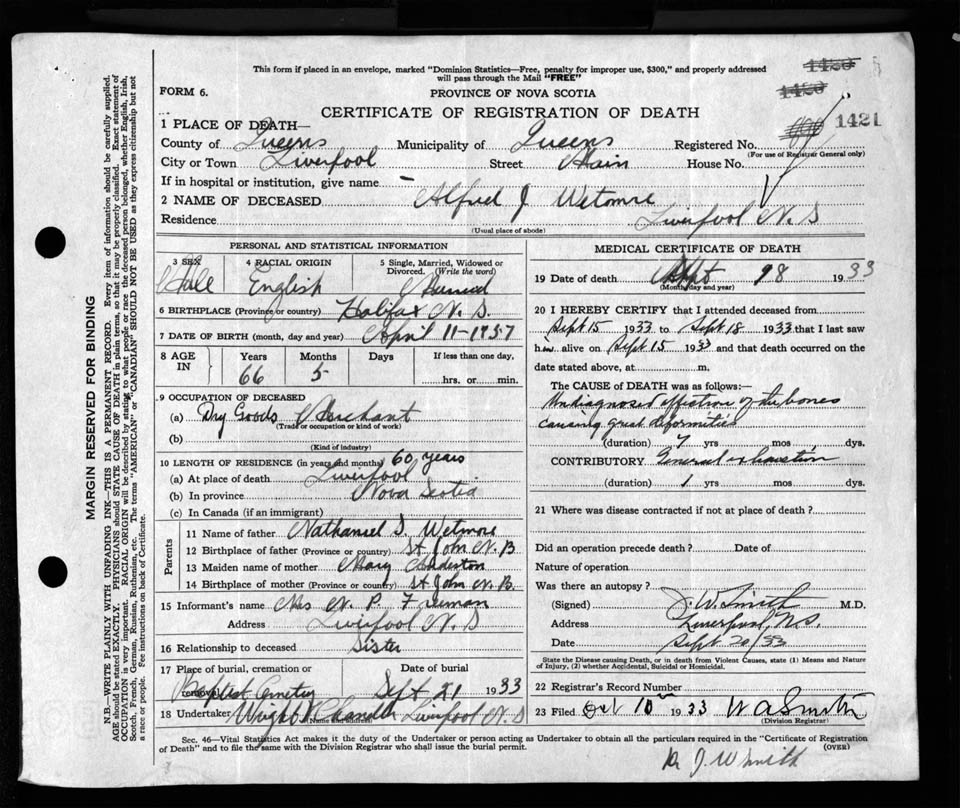 This form if placed in an envelope, marked "Dominion Statistics—Free, penalty for improper use, $300," and properly addressed
will pass through the Mail "FREE"
1420
1420
1421
FORM 6.
PROVINCE OF NOVA SCOTIA
CERTIFICATE OF REGISTRATION OF DEATH
1 PLACE OF DEATH—
County of Queens Municipality of Queens Registered No.
(For use of Registrar General only)
City or Town Liverpool Street Main House No.
If in hospital or institution, give name —
2 NAME OF DECEASED Alfred J Wetmore
Residence Liverpool N. S
(Usual place of abode)
PERSONAL AND STATISTICAL INFORMATION
3 SEX Male
4 RACIAL ORIGIN English
5 Single, Married, Widowed or Divorced. (Write the word) Married
6 BIRTHPLACE (Province or country) Halifax N. S.
7 DATE OF BIRTH (month, day and year) April 11-
8 AGE IN Years 66 Months 5 Days If less than one day, ......hrs. or ......min.
9 OCCUPATION OF DECEASED
(a) Dry Goods Merchant
(Trade or occupation or kind of work)
(b)
(Kind of industry)
10 LENGTH OF RESIDENCE (in years and months) 60 years
(a) At place of death Liverpool
(b) In province Nova Scotia
(c) In Canada (if an immigrant)
Parents
11 Name of father Nathaniel S. Wetmore
12 Birthplace of father (Province or country) St John N. B
13 Maiden name of mother Mary
14 Birthplace of mother (Province or country) St John N. B.
15 Informant's name Mrs N. P. Freeman
Address Liverpool N. S
16 Relationship to deceased Sister
17 Place of burial, cremation or removal Baptist Cemetery
Date of burial Sept 21 1933
18 Undertaker Wright Chandler Liverpool N. S
(Name
MEDICAL CERTIFICATE OF DEATH
19 Date of death Sept 18 1933
(Month, day and year)
20 I HEREBY CERTIFY that I attended deceased from
Sept 15 1933 to Sept 18 1933 that I last saw
him alive on Sept 15 1933 and that death occurred on the
date stated above, at m.
The CAUSE OF DEATH was as follows:
Undiagnosed affection of the bones
causing great deformities
(duration) 7 yrs mos dys.
CONTRIBUTORY General exhaustion
(duration) 1 yrs mos dys.
21 Where was disease contracted if not at place of death?
Did an operation precede death? Date of
Nature of operation
Was there an autopsy?
(Signed) J. W. Smith M.D.
Address Liverpool, N.S.
Date Sept 20/33
State the Disease causing Death, or in death from Violent Causes, state (1) Means and Nature
of Injury, (2) whether Accidental, Suicidal or Homicidal.
22 Registrar's Record Number
23 Filed Oct 10 1933 W A Smith
(Division Registrar)
Sec. 46—Vital Statistics Act makes it the duty of the Undertaker or person acting as Undertaker to obtain all the particulars required in the "Certificate of Registration
of Death" and to file the same with the Division Registrar who shall issue the burial permit.
(OVER)
Dr J. W Smith
MARGIN RESERVED FOR BINDING
N.B.—WRITE PLAINLY WITH UNFADING INK—THIS IS A PERMANENT RECORD. Every item of information should be carefully supplied.
AGE should be stated EXACTLY. PHYSICIANS should STATE CAUSE OF DEATH in plain terms, so that it may be properly classified. Exact statement of
OCCUPATION is very important. RACIAL ORIGIN will be described by stating to what people or race the deceased person belonged, whether English, Irish,
Scotch, French, German, Russian, Ruthenian, etc. The terms "AMERICAN" or "CANADIAN" SHOULD NOT BE USED as they express citizenship but not
a race or people. Fee instructions on back of Certificate.